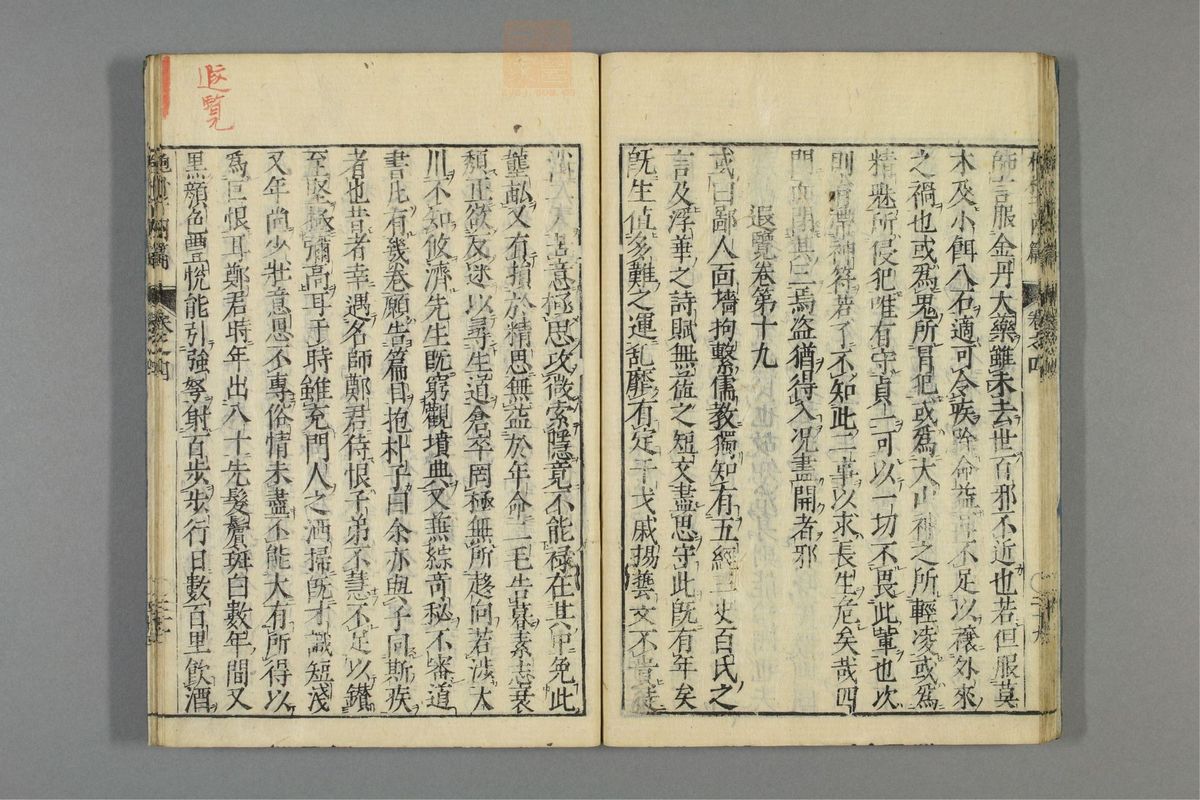 師言服金丹大藥雖未去世百邪不近也若但服草
木及小餌八石適可令疾除命益耳不足以禳外來
之禍也或爲鬼所冒犯或爲大山神之所輕凌或爲
精魅所侵犯唯有守眞一可以一切不畏此輩也次
則有帶神符若了不知此二事以求長生危矣哉四
門而閉其三焉盗猶得入况盡開者邪
遐覽卷第十九
或曰鄙人面墻拘繫儒教獨知有五經三史百氏之
言及浮華之詩賦無益之短文盡思守此旣有年矣
旣生値多難之運乱靡有定干戈戚揚藝文不貴徒
消工夫苦意極思攻微索隱竟不能禄在其中免此
壟畝又有損於精思無益於年命二毛告暮素志衰
頽正欲反迷以尋生道倉卒罔極無所趍向若渉大
川不知攸濟先生旣窮觀墳典又兼綜奇秘不審道
書凡有幾卷願告篇目抱朴子曰余亦與子同斯疾
者也昔者幸遇名師鄭君待恨子弟不慧不足以鑚
至堅極彌高耳于時雖充門人之洒掃旣才識短淺
又年尚少壯意思不專俗情未盡不能大有所得以
爲巨恨耳鄭君時年出八十先髮鬢斑白數年間又
黑顔色豐悦能引強弩射百歩歩行日數百里飲酒
遐覽